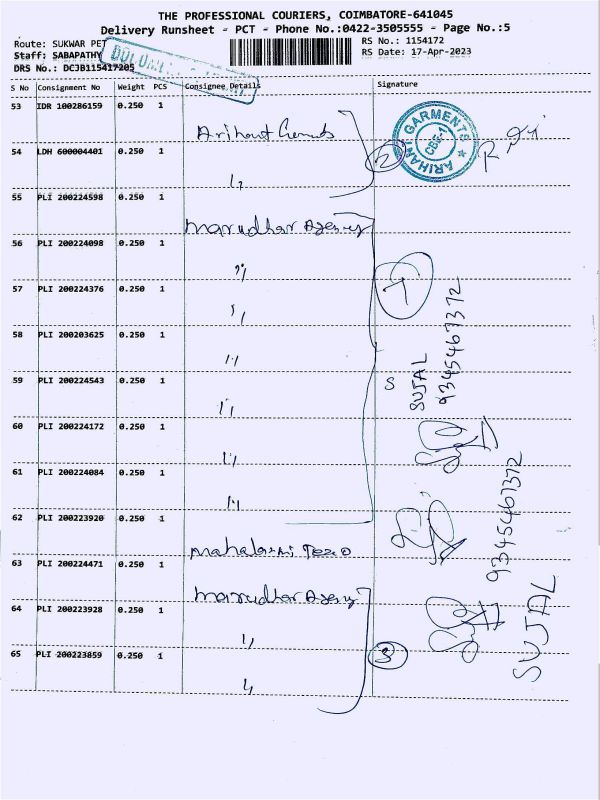 THE PROFESSIONAL COURIERS, COIMBATORE-641045
Delivery Runsheet - PCT - Phone No.:0422-3505555 - Page No.:5
Route: SUKWAR PET
RS No.: 1154172
Staff: SABAPATHY
RS Date: 17-Apr-2023
DRS No.: DCJB115417205
S No Consignment No Weight PCS Consignee Details Signature
53 IDR 100286159 0.250 1
ARIHANT GARMENTS
CBE-1
2
54 LDH 600004401 0.250 1
55 PLI 200224598 0.250 1
Marudhar Agency
56 PLI 200224098 0.250 1
57 PLI 200224376 0.250 1
7
58 PLI 200203625 0.250 1
59 PLI 200224543 0.250 1
S SUJAL
9345467372
60 PLI 200224172 0.250 1
61 PLI 200224084 0.250 1
62 PLI 200223920 0.250 1
63 PLI 200224471 0.250 1
Marudhar Agency
9345467372
SUJAL
64 PLI 200223928 0.250 1
65 PLI 200223859 0.250 1
3